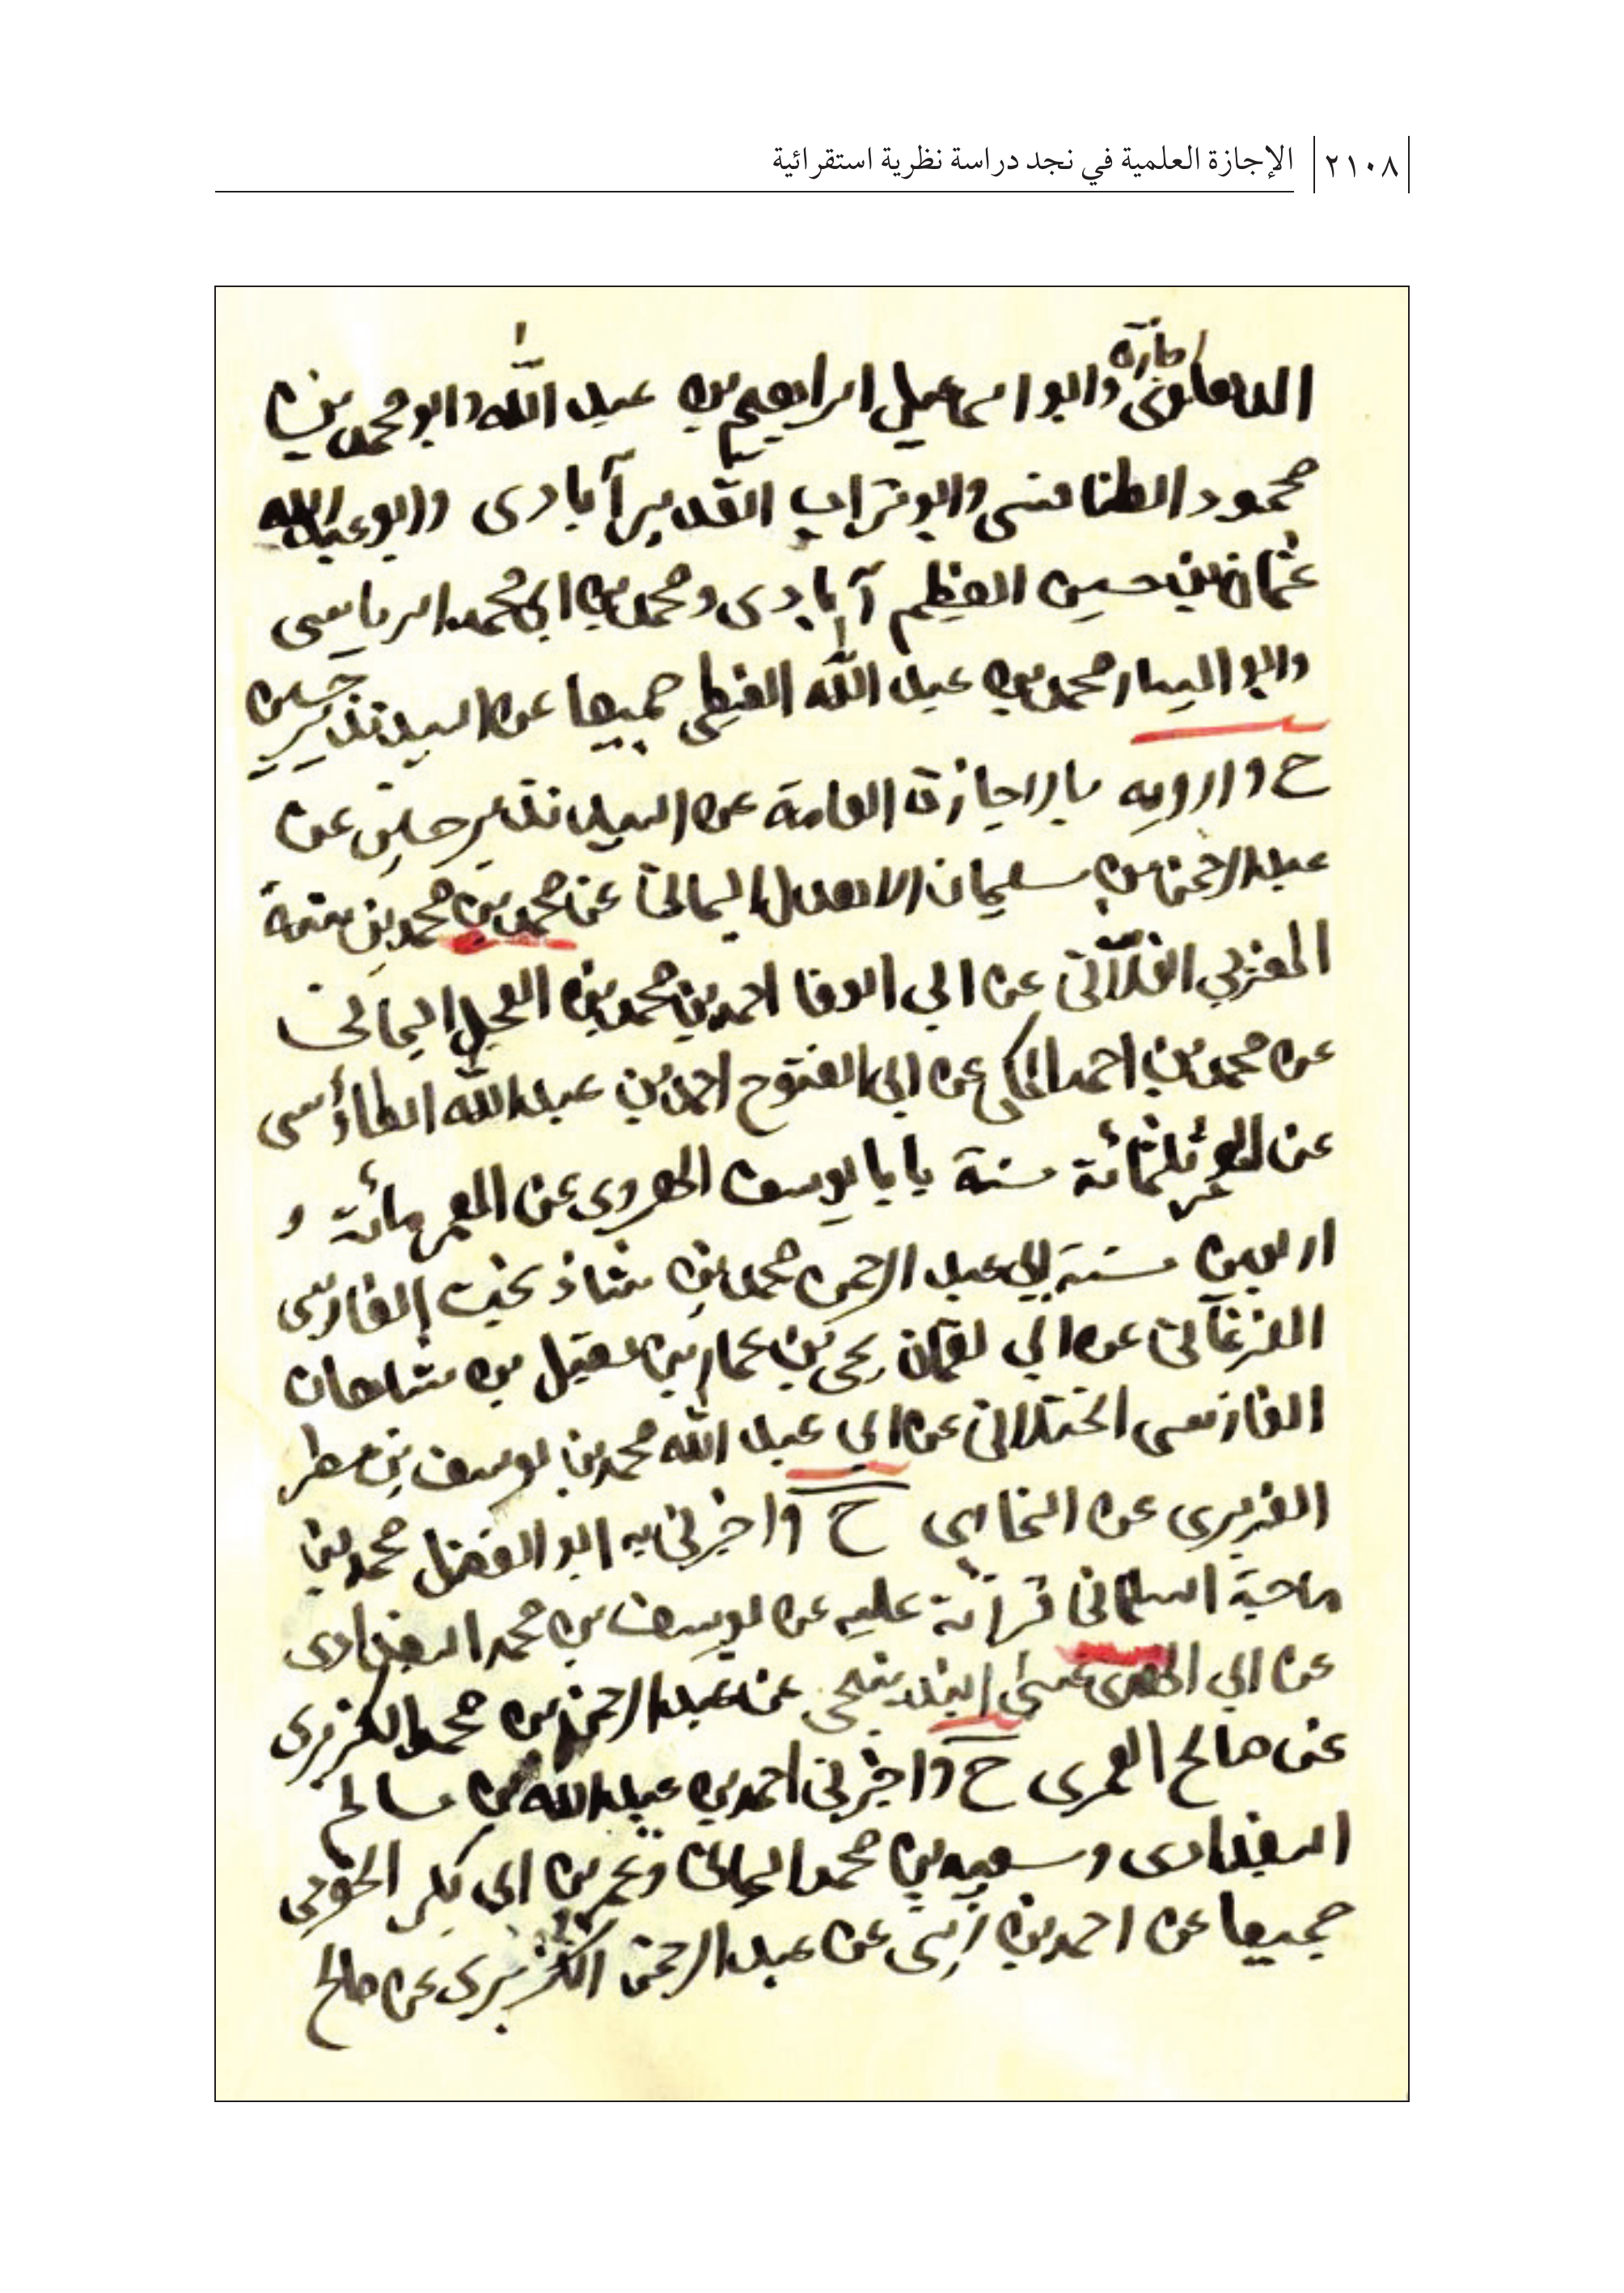 ٢١٠٨ الإجازة العلمية في نجد دراسة نظرية استقرائية
إجازة
وابو اسماعيل ابراهيم بن عبد الله وابو محمد بن
محمود الطنافسى وابو تراب القدير آبادى وابو عبد الله
عثمان بن حسين العظيم آبادى ومحمد بن ابى محمد
وابو اليسار محمد بن عبد الله جميعا عن السيد نذير حسين
ح وارويه بالاجازة العامة عن السيد نذير حسين عن
عبد الرحمن بن سليمان الاهدل اليمانى عن محمد بن محمد بن سنة
المغربي الفلآنى عن ابي الوفا احمد بن محمد بن العجل اليمانى
عن محمد بن احمد المكى عن ابى الفتوح احمد بن عبد الله الطاؤسى
عن المعمر ثلثمائة سنة بابا يوسف الهروى عن المعمر مائة و
اربعين سنة ابي عبد الرحمن محمد بن شاذ بخت الفارسى
الفرغآنى عن ابي لقمان يحى بن عمار بن مقيل بن شاهان
الفارسى الختلانى عن ابى عبد الله محمد بن يوسف بن مطر
الفربرى عن البخارى ح واخبرنى به ابو الفضل محمد بن
قرآئة عليه عن يوسف بن محمد البغدادى
عن ابي الهدى عيسى البندنيجى عن عبد الرحمن بن محمد الكزبرى
عن صالح العمرى ح واخبرنى احمد بن عبد الله بن سالم
البغدادى وسعيد بن محمد اليمانى وعمر بن ابى بكر
جميعا عن احمد بن زينى عن عبد الرحمن الكزبرى عن صالح